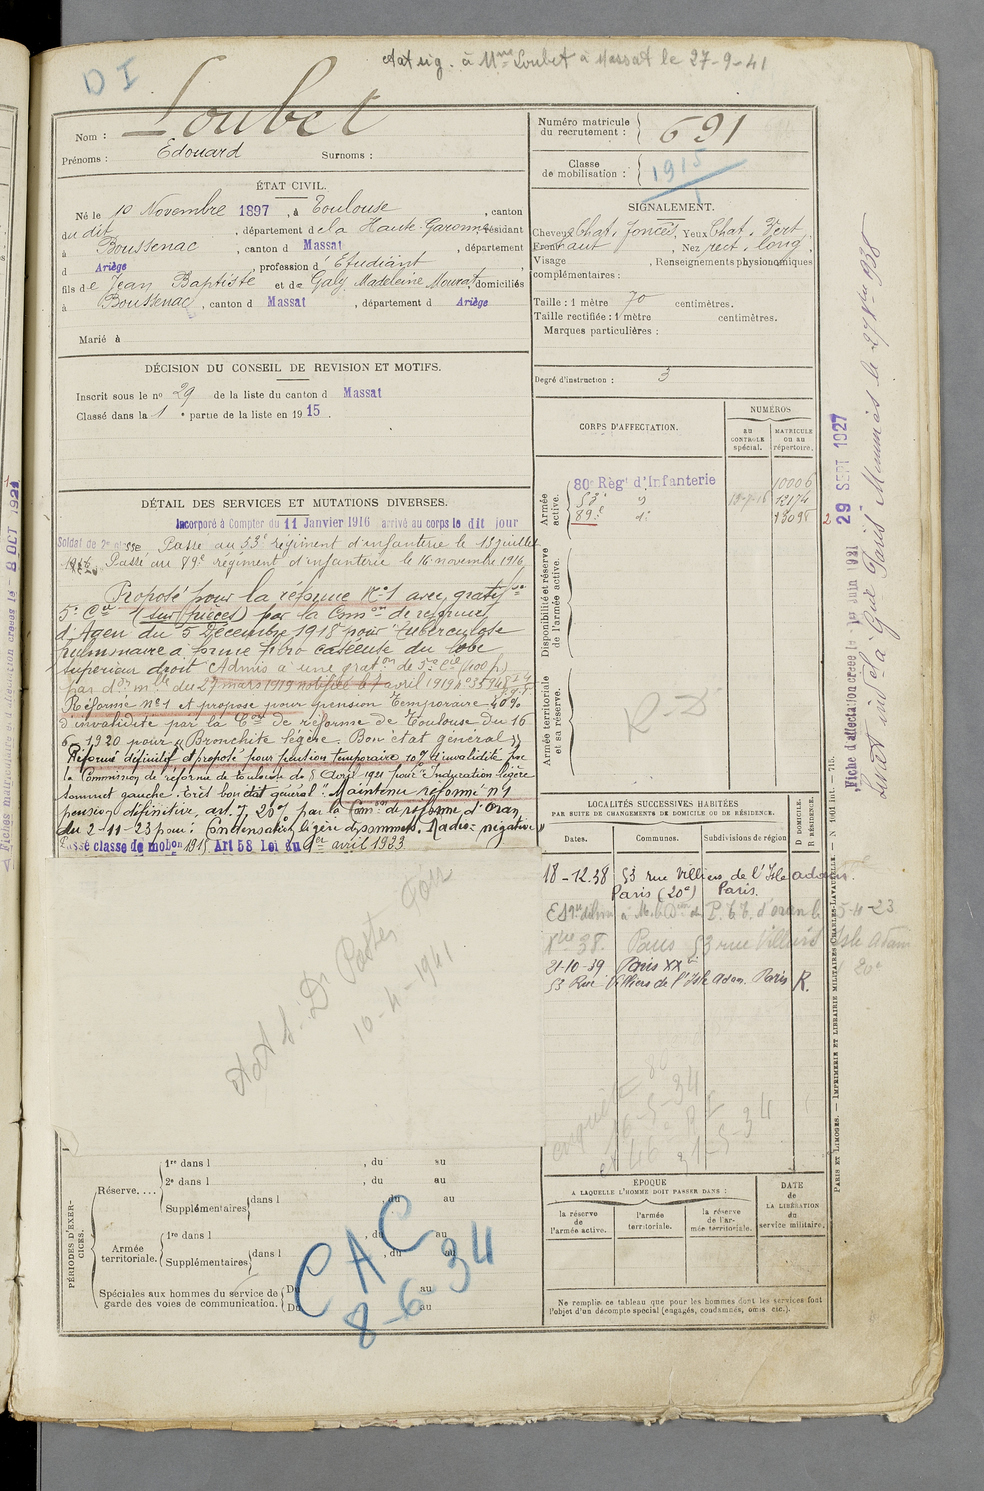 D I
état sig. à Mme Loubet à Massat le 27-9-41
Nom : Loubet
Prénoms : Edouard Surnoms :
Numéro matricule du recrutement : 691
Classe de mobilisation : 1915
ÉTAT CIVIL.
Né le 10 Novembre 1897, à Toulouse, canton
du dit, département de la Haute-Garonne, résidant
à Boussenac, canton d Massat, département
d Ariège, profession d' Etudiant
fils de Jean Baptiste et de Galy Madeleine Mourat, domiciliés
à Boussenac, canton d Massat, département d Ariège
Marié à
SIGNALEMENT.
Cheveux Chat. foncés. Yeux Chat. Vert
Front haut, Nez rect. long.
Visage , Renseignements physionomiques
complémentaires :
Taille : 1 mètre 70 centimètres.
Taille rectifiée : 1 mètre centimètres.
Marques particulières :
Degré d'instruction : 3
DÉCISION DU CONSEIL DE REVISION ET MOTIFS.
Inscrit sous le no 29 de la liste du canton d Massat
Classé dans la 1 e partie de la liste en 1915.
CORPS D'AFFECTATION.
NUMÉROS
AU CONTROLE spécial.
MATRICULE OU AU répertoire.
Armée active.
80e Régt d'Infanterie 10006
53e 12174
89e 13098
Disponibilité et réserve de l'armée active.
Armée territoriale et sa réserve.
R-D
DÉTAIL DES SERVICES ET MUTATIONS DIVERSES.
Incorporé à Compter du 11 Janvier 1916 arrivé au corps le dit jour
Soldat de 2e classe, Passé au 53e régiment d'infanterie le 13 juillet
1916 Passé au 89e régiment d'infanterie le 16 novembre 1916
Proposé pour la réforme No 1 avec gratif on
5e Cie (sur pièces) par la Com on de réforme
d'Agen du 5 Décembre 1918 pour tuberculose
pulmonaire à forme fibro caséeuse du lobe
supérieur droit Admis à une grat on de 5e Cie
par don mlle du 27 mars 1919 notifiée le 7 avril 1919
Réforme no 1 et proposé pour pension temporaire 40%
d'invalidité par la Con de réforme de Toulouse du 16
6-1920 pour « Bronchite légère. Bon état général »
Réformé définitif et proposé pour pension temporaire 10% d'invalidité par
la Commission de réforme de Toulouse du 5 Avril 1921 pour "Induration légère
sommet gauche. Très bon état général". Maintenu réformé no 1
pension définitive, art. 7, 20% par la Com on de réforme d'Oran
du 2-11-23 pour : Condensation légère d. sommets, Radio : négative »
Passé classe de mobon 1915 Art 58 Loi du 1er avril 1923
état s. Dr Postes
10-4-1941
LOCALITÉS SUCCESSIVES HABITÉES
PAR SUITE DE CHANGEMENTS DE DOMICILE OU DE RÉSIDENCE.
Dates. Communes. Subdivisions de région
D DOMICILE. R RÉSIDENCE.
18-12.38 53 rue Villiers de l'Isle adam.
Paris (20e) Paris.
P.T.T. d'oran le 5-4-23
38. Paris 53 rue Villiers Isle Adam
20e
21-10-39 Paris XXe
53 Rue Villiers de l'Isle Adam Paris R.
enquête
16-5-34
31-5-34
PÉRIODES D'EXERCICES.
Réserve....
1re dans l , du au
2e dans l , du au
Supplémentaires dans l , du au
Armée territoriale.
1re dans l , du au
Supplémentaires dans l , du au
Spéciales aux hommes du service de garde des voies de communication.
Du au
Du au
CAC
8-6-34
ÉPOQUE
A LAQUELLE L'HOMME DOIT PASSER DANS :
la réserve de l'armée active.
l'armée territoriale.
la réserve de l'armée territoriale.
DATE de LA LIBÉRATION du service militaire.
Ne remplir ce tableau que pour les hommes dont les services font
l'objet d'un décompte spécial (engagés, condamnés, omis, etc.).
PARIS ET LIMOGES. — IMPRIMERIE ET LIBRAIRIE MILITAIRES CHARLES-LAVAUZELLE. — N 1961 Int. — 715.
Fiche d'affectation créée le 1er Juin 1921
29 SEPT 1927
Fiches matriculaires et d'affectation créées le - 8 OCT 1921